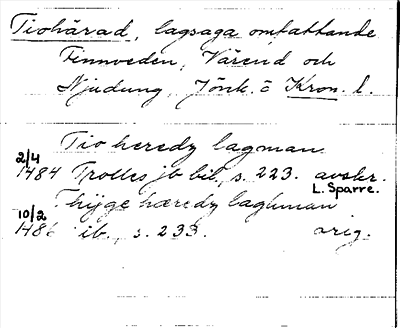 Tiohärad, lagsaga omfattande
Finnveden, Värend och
Njudung, Jönk. o Kron. l.
Tio heredz lagman
2/4
1484 Trolles jb bil., s. 223. avskr.
L. Sparre.
Thijge hæredz laghman
10/2
1486 ib., s. 233. orig.